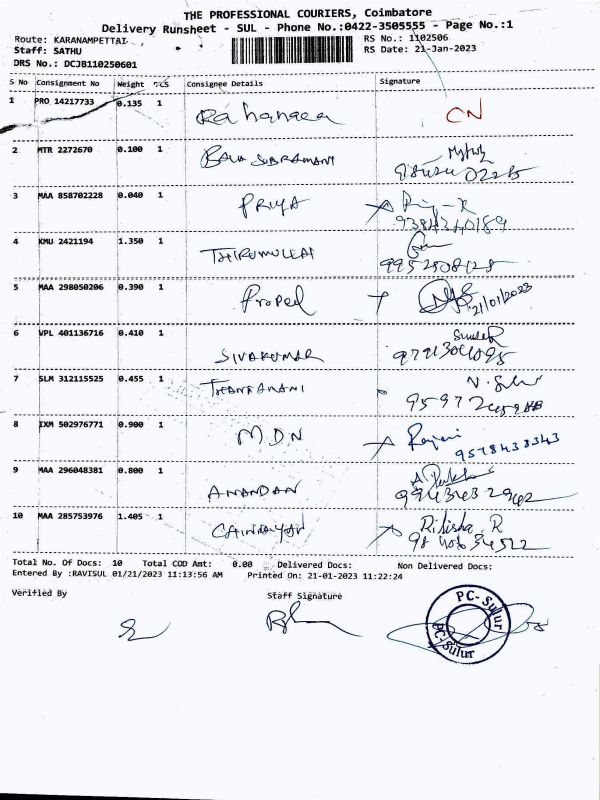 THE PROFESSIONAL COURIERS, Coimbatore
Delivery Runsheet - SUL - Phone No.:0422-3505555 - Page No.:1
Route: KARANAMPETTAI RS No.: 1102506
Staff: SATHU RS Date: 21-Jan-2023
DRS No.: DCJB110250601
S No Consignment No Weight PCS Consignee Details Signature
1 PRO 14217733 0.135 1 CN
2 MTR 2272670 0.100 1 BALA SUBRAMANI
3 MAA 858702228 0.040 1 PRIYA
4 KMU 2421194 1.350 1 THIRUMULLAI
5 MAA 298050206 0.390 1 Propel 21/01/2023
6 VPL 401136716 0.410 1 SIVAKUMAR
7 SLM 312115525 0.455 1
8 IXM 502976771 0.900 1 MDN 9578438343
9 MAA 296048381 0.800 1 ANANDAN
10 MAA 285753976 1.405 1 Rilisha R
Total No. Of Docs: 10 Total COD Amt: 0.00 Delivered Docs: Non Delivered Docs:
Entered By :RAVISUL 01/21/2023 11:13:56 AM Printed On: 21-01-2023 11:22:24
Verified By Staff Signature
PC-Sulur
PC-Sulur